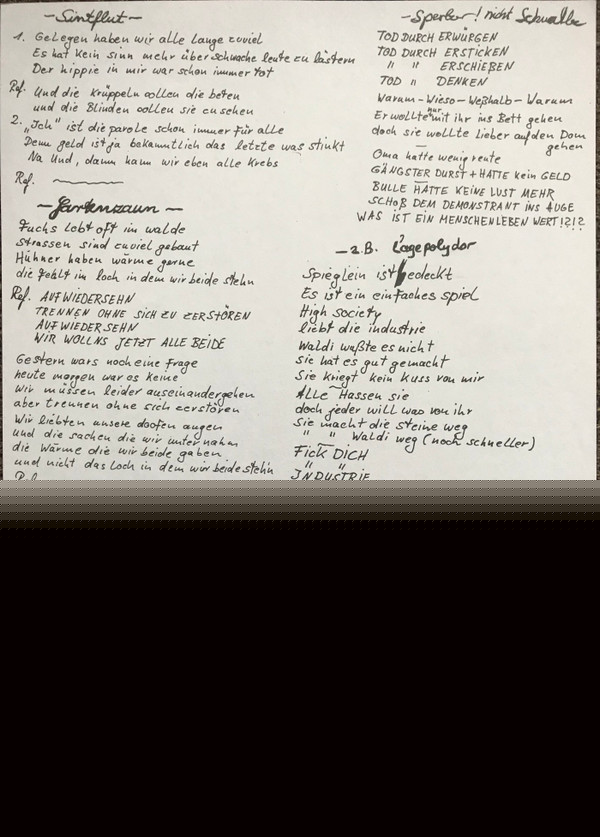 - Sintflut -
1. Gelegen haben wir alle lange zuviel
Es hat kein sinn mehr über schwache leute zu lästern
Der hippie in mir war schon immer tot
Ref. Und die Krüppeln sollen die beten
und die Blinden sollen sie ensehen
2. „Ich" ist die parole schon immer für alle
Denn geld ist ja bekanntlich das letzte was stinkt
Na Und, dann ham wir eben alle Krebs
Ref.
- Gartenzaun -
Fuchs lebt oft im walde
Strassen sind zuviel gebaut
Hühner haben wärme gerne
die fehlt im loch in dem wir beide stehn
Ref. AUFWIEDERSEHN
TRENNEN OHNE SICH ZU ZERSTÖREN
AUFWIEDERSEHN
WIR WOLLNS JETZT ALLE BEIDE
Gestern wars noch eine frage
heute morgen war es keine
Wir müssen leider auseinandergehen
aber trennen ohne sich zerstören
Wir liebten unsere doofen augen
und die sachen die wir unternahm
die Wärme die wir beide gaben
und nicht das Loch in dem wir beide steh'n
Ref.
- Sperber! nicht Schwalbe
TOD DURCH ERWÜRGEN
TOD DURCH ERSTICKEN
" " ERSCHIEßEN
TOD " DENKEN
Warum - Wieso - Weßhalb - Warum
Er wollte nur mit ihr ins Bett gehen
doch sie wollte lieber auf den Dom gehen
Oma hatte wenig rente
GÄNGSTER DURST + HATTE kein GELD
BULLE HATTE KEINE LUST MEHR
SCHOß DEM DEMONSTRANT INS AUGE
WAS IST EIN MENSCHENLEBEN WERT!?!?
- z.B. Lagepolydor
Spieglein ist gedeckt
Es ist ein einfaches spiel
High society
liebt die industrie
Waldi wußte es nicht
sie hat es gut gemacht
Sie kriegt kein Kuss von mir
Alle Hassen sie
doch jeder will was von ihr
Sie macht die steine weg
" " Waldi weg (noch schneller)
FICK DICH
" "
INDUSTRIE